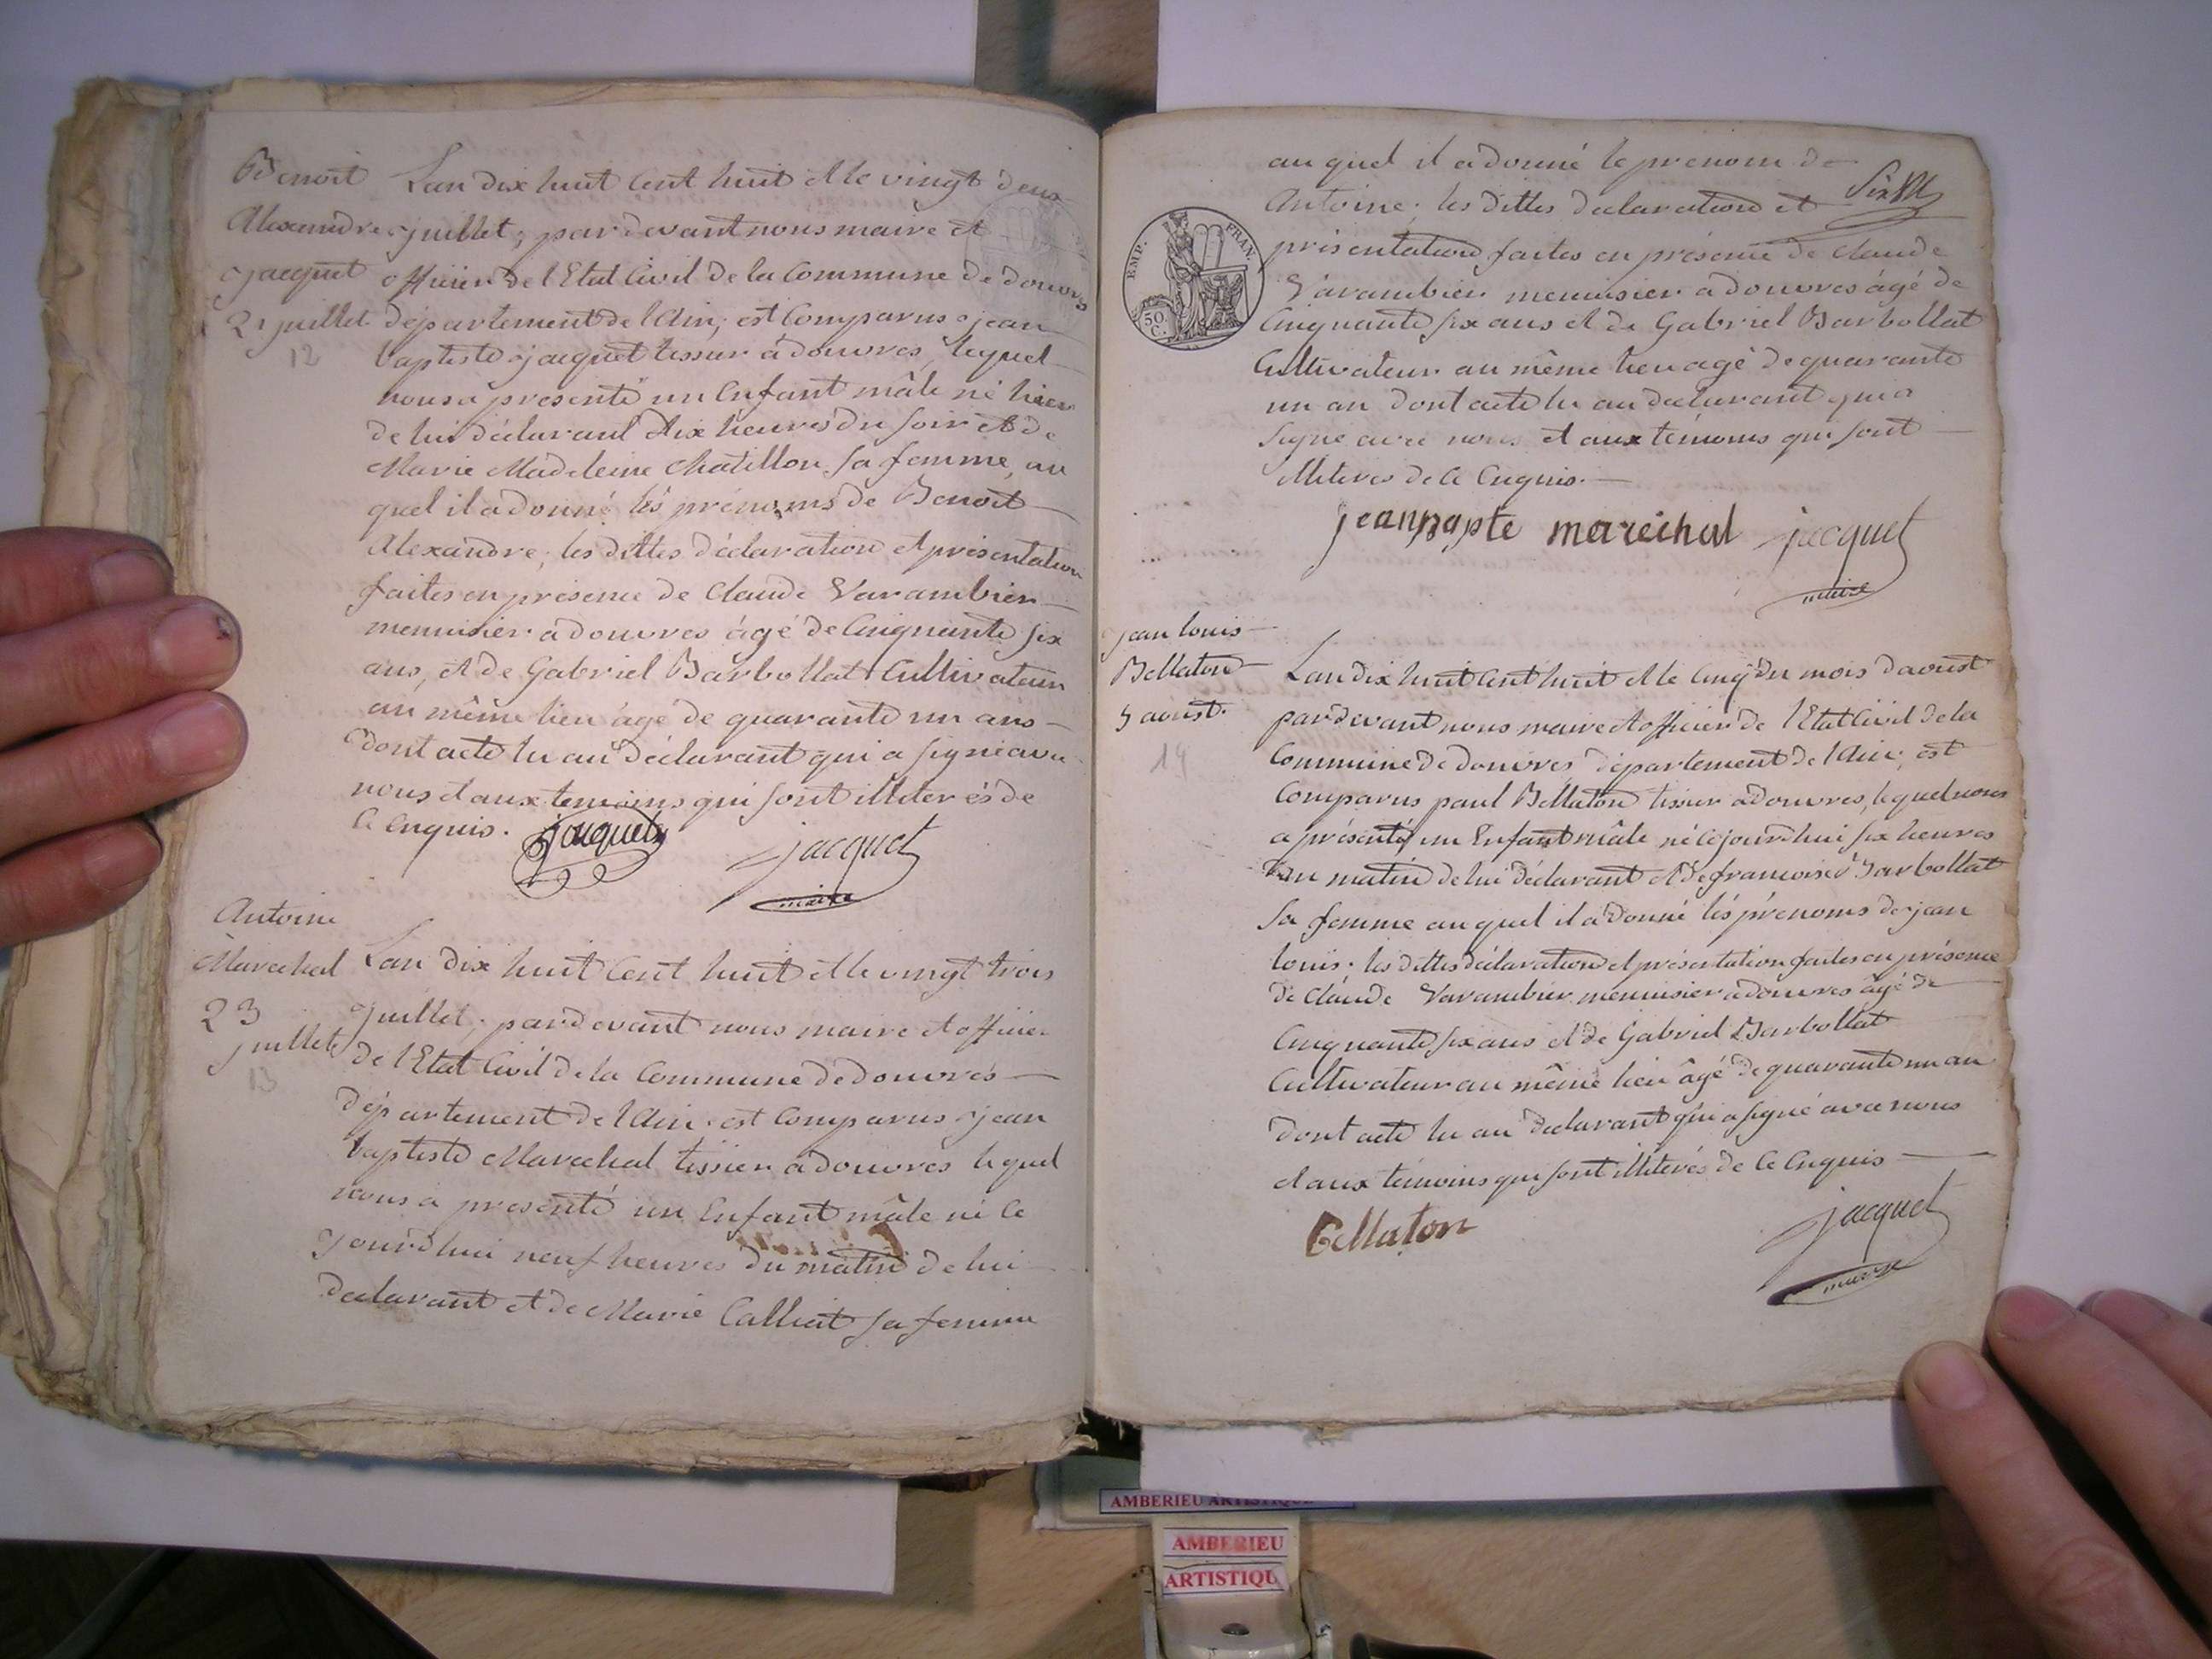 Benoit
Alexandre
jacquet
21 juillet
12
Lan dix huit Cent huit et le vingt deux
juillet, pardevant nous maire et
officier de l'Etat Civil de la Commune de douvres
departement de l'Ain, est Comparus jean
baptiste jacquet tissier à douvres, lequel
nous à presenté un Enfant mâle né hier
de lui déclarant dix heures du soir et de
Marie Madeleine Chatillon sa femme, au
quel il a donné les prénoms de Benoit
Alexandre, les dittes déclaration et présentation
faites en présence de Claude Varambier
menuisier à douvres âgé de Cinquante six
ans, et de Gabriel Barbollat Cultivateur
au même lieu âgé de quarante un ans
dont acte lu au déclarant qui a signé avec
nous et aux temoins qui sont illiterés de
Ce Enquis. jacquet jacquet
maire
Antoine
Marechal
23
juillet
13
Lan dix huit Cent huit et le vingt trois
juillet, pardevant nous maire et officier
de l'Etat Civil de la Commune de douvres
département de l'Ain, est Comparus jean
baptiste Marechal tissier à douvres lequel
nous à presenté un Enfant mâle né Ce
jourd'hui neuf heures du matin de lui
declarant et de Marie Calliat sa femme
au quel il a donné le prenom de
Antoine; les dittes declaration et
présentation faites en présence de Claude
Varambier menuisier à douvres âgé de
Cinquante six ans et de Gabriel Barbollat
Cultivateur au même lieu agé de quarante
un an dont acte lu au declarant qui a
signé avec nous et aux témoins qui sont
illiterés de Ce Enquis.
EMP. FRAN.
50
C.
jeanbapte marechal jacquet
maire
jean louis
Bellaton
5 aoust.
14
Lan dix huit Cent huit et le Cinq du mois d'aoust
pardevant nous maire et officier de l'Etat Civil de la
Commune de douvres, département de l'Ain, est
Comparus paul Bellaton tissier à douvres, lequel nous
a présenté un Enfant mâle né Cejourdhui six heures
du matin de lui déclarant et de francoise Barbollat
sa femme auquel il à donné les prenoms de jean
louis. les dittes déclaration et présentation faites en présence
de Claude Varambier menuisier à douvres âgé de
Cinquante six ans et de Gabriel Barbollat
Cultivateur au même lieu âgé de quarante un an
dont acte lu au declarant qui a signé avec nous
et aux témoins qui sont illiterés de Ce Enquis
Bellaton jacquet
maire
AMBERIEU ARTISTIQUE
AMBERIEU
ARTISTIQU